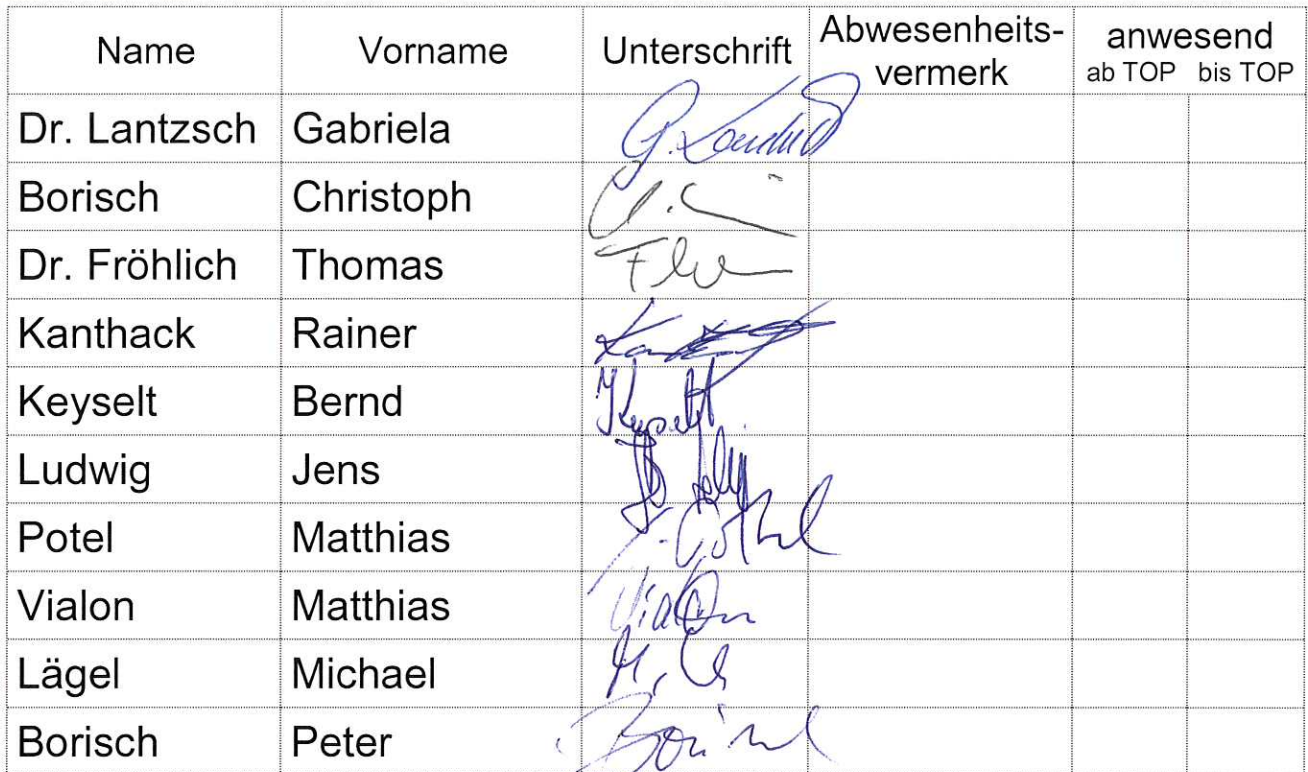 Name Vorname Unterschrift Abwesenheits-vermerk anwesend
ab TOP bis TOP
Dr. Lantzsch Gabriela
Borisch Christoph
Dr. Fröhlich Thomas
Kanthack Rainer
Keyselt Bernd Keyselt
Ludwig Jens
Potel Matthias
Vialon Matthias Vialon
Lägel Michael
Borisch Peter